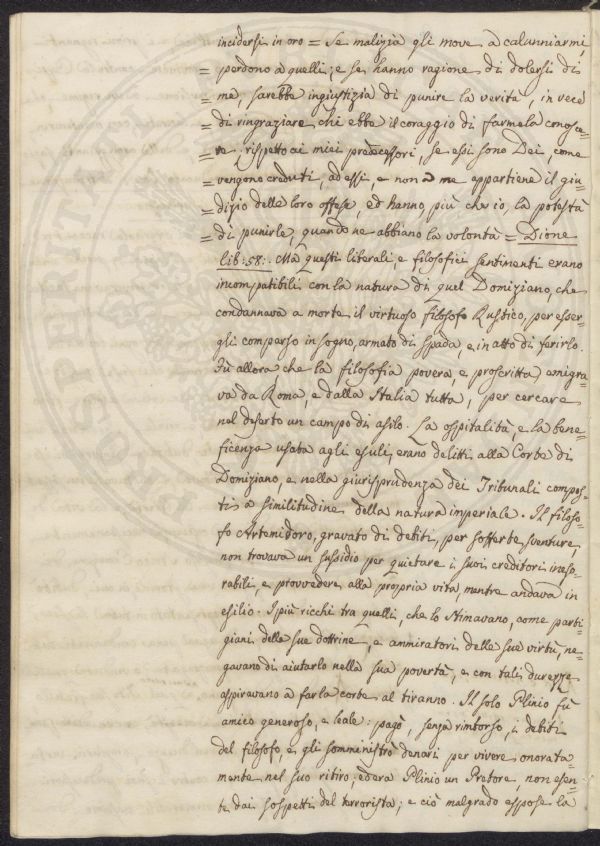 incidersi in oro = Se malizia gli move a calunniarmi,
= perdono a quelli; e se hanno ragione di dolersi di
= me, sarebbe ingiustizia di punire la verità, in vece
= di ringraziare chi ebbe il coraggio di farmela conosce-
= re rispetto ai miei predecessori, se essi sono Dei, come
= vengono creduti, ad essi, e non a me appartiene il giu-
= dizio delle loro offese, ed hanno, più che io, la potestà
= di punirle, quando ne abbiano la volontà = Dione
lib: 58:. Ma questi liberali, e filosofici sentimenti erano
incompatibili con la natura di quel Domiziano, che
condannava a morte il virtuoso filosofo Rustico, per esser-
gli comparso in sogno, armato di spada, e in atto di ferirlo.
Fù allora che la filosofia povera, e proscritta, emigra-
va da Roma, e dalla Italia tutta, per cercare
nel deserto un campo di asilo. La ospitalità, e la bene-
ficenza usata agli esuli, erano delitti alla Corte di
Domiziano, e nella giurisprudenza dei Tribunali compos-
ti a similitudine della natura imperiale. Il filoso-
fo Artemidoro, gravato di debiti, per sofferte sventure,
non trovava un sussidio per quietare i suoi creditori ineso-
rabili, e provvedere alla propria vita, mentre andava in
esilio. I più ricchi tra quelli, che lo stimavano, come parti-
giani delle sue dottrine, e ammiratori delle sue virtù, ne-
gavano di aiutarlo nella sua povertà, e con tali durezze
aspiravano a far la corte al tiranno. Il solo Plinio fù
amico generoso, e leale: pagò, senza rimborso, i debiti
del filosofo, e gli somministrò denari per vivere onorata-
mente nel suo ritiro; ed era Plinio un Pretore, non esen-
te dai sospetti del terrorista; e ciò malgrado espose la